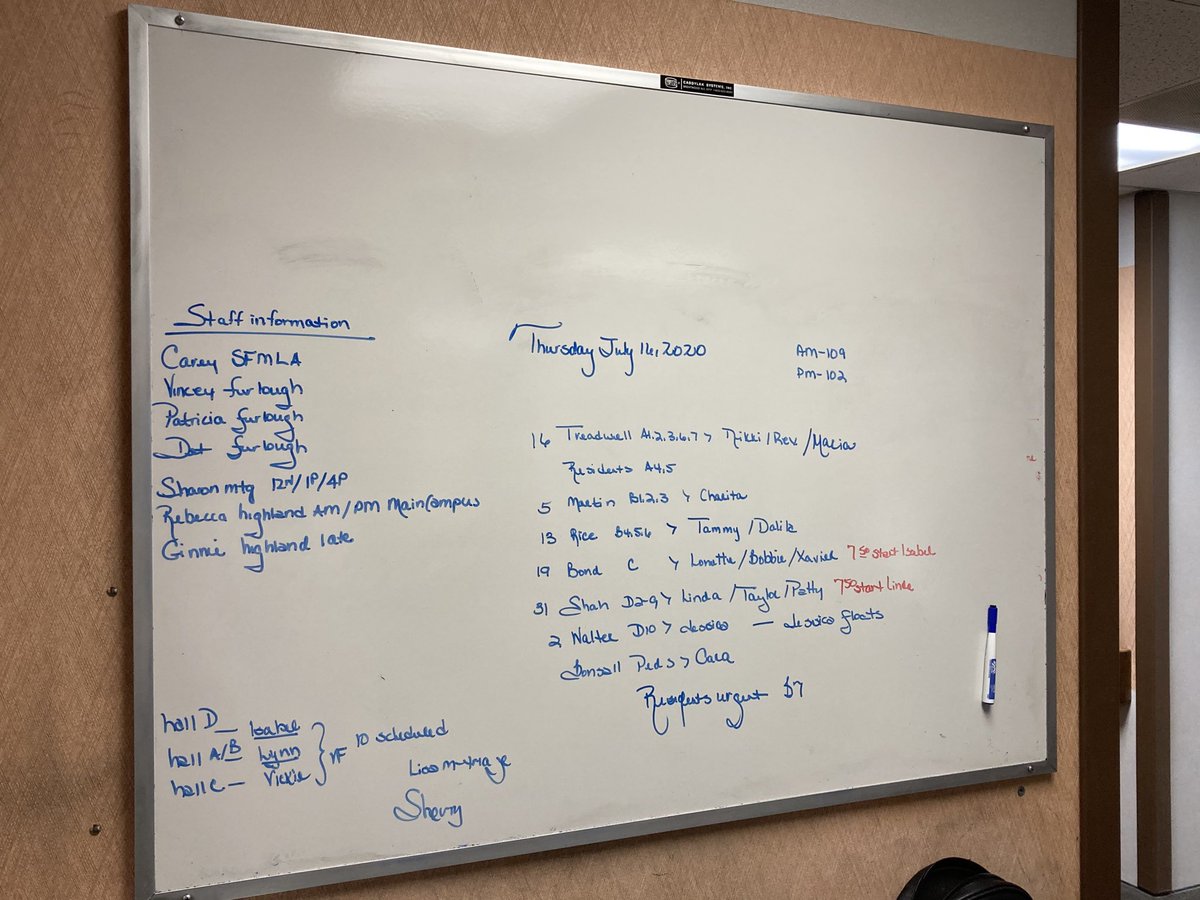 CADDYLAK SYSTEMS, INC.
Staff information
Carey SFMLA
Vincey furlough
Patricia furlough
Dot furlough
Sharon mtg 12N/1P/4P
Rebecca highland AM/PM Main Campus
Ginnie highland late
hall D — Isabel
hall A/B Lynn
hall C — Vickie
VF 10 scheduled
Sherry
Thursday July 16, 2020
AM-109
PM-102
16 Treadwell A1.2.3.6.7 > Nikki/Rex/Macia
Residents A4.5
5 Martin B1.2.3 > Charita
13 Rice B4.5.6 > Tammy/Dalila
19 Bond C > Lonette/Bobbie/Xavier 7:50 start Isabel
31 Shah D2-9 > Linda/Taylor/Patty 7:50 start Linda
2 Walter D10 > Jessica — Jessica floats
Bonsall Peds > Cara
Residents urgent B7